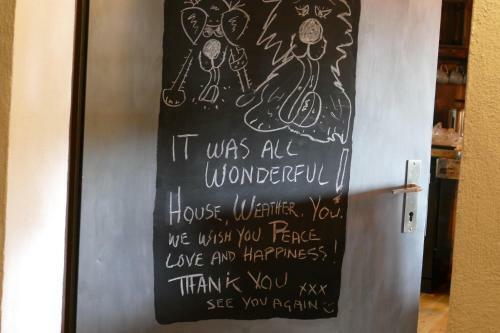 IT WAS ALL
WONDERFUL!
HOUSE, WEATHER, YOU.
WE WISH YOU PEACE
LOVE AND HAPPINESS!
THANK YOU xxx
SEE YOU AGAIN ☺